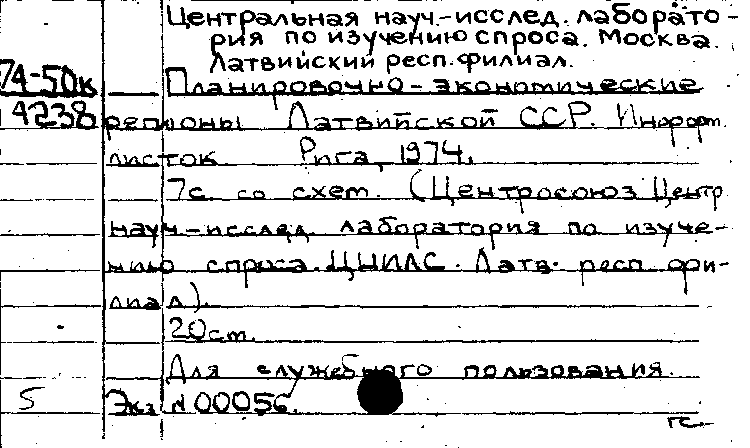 Центральная науч.-исслед. лаборато-
рия по изучению спроса. Москва.
Латвийский респ. филиал.
74-50к Планировочно-экономические
4238 регионы Латвийской ССР. Информ.
листок. Рига, 1974.
7с. со схем. (Центросоюз Центр
науч-исслед. лаборатория по изуче-
нию спроса. ЦНИЛС. Латв. респ. фи-
лиал).
20см.
Для служебного пользования.
5 Экз N 00056.
гс.